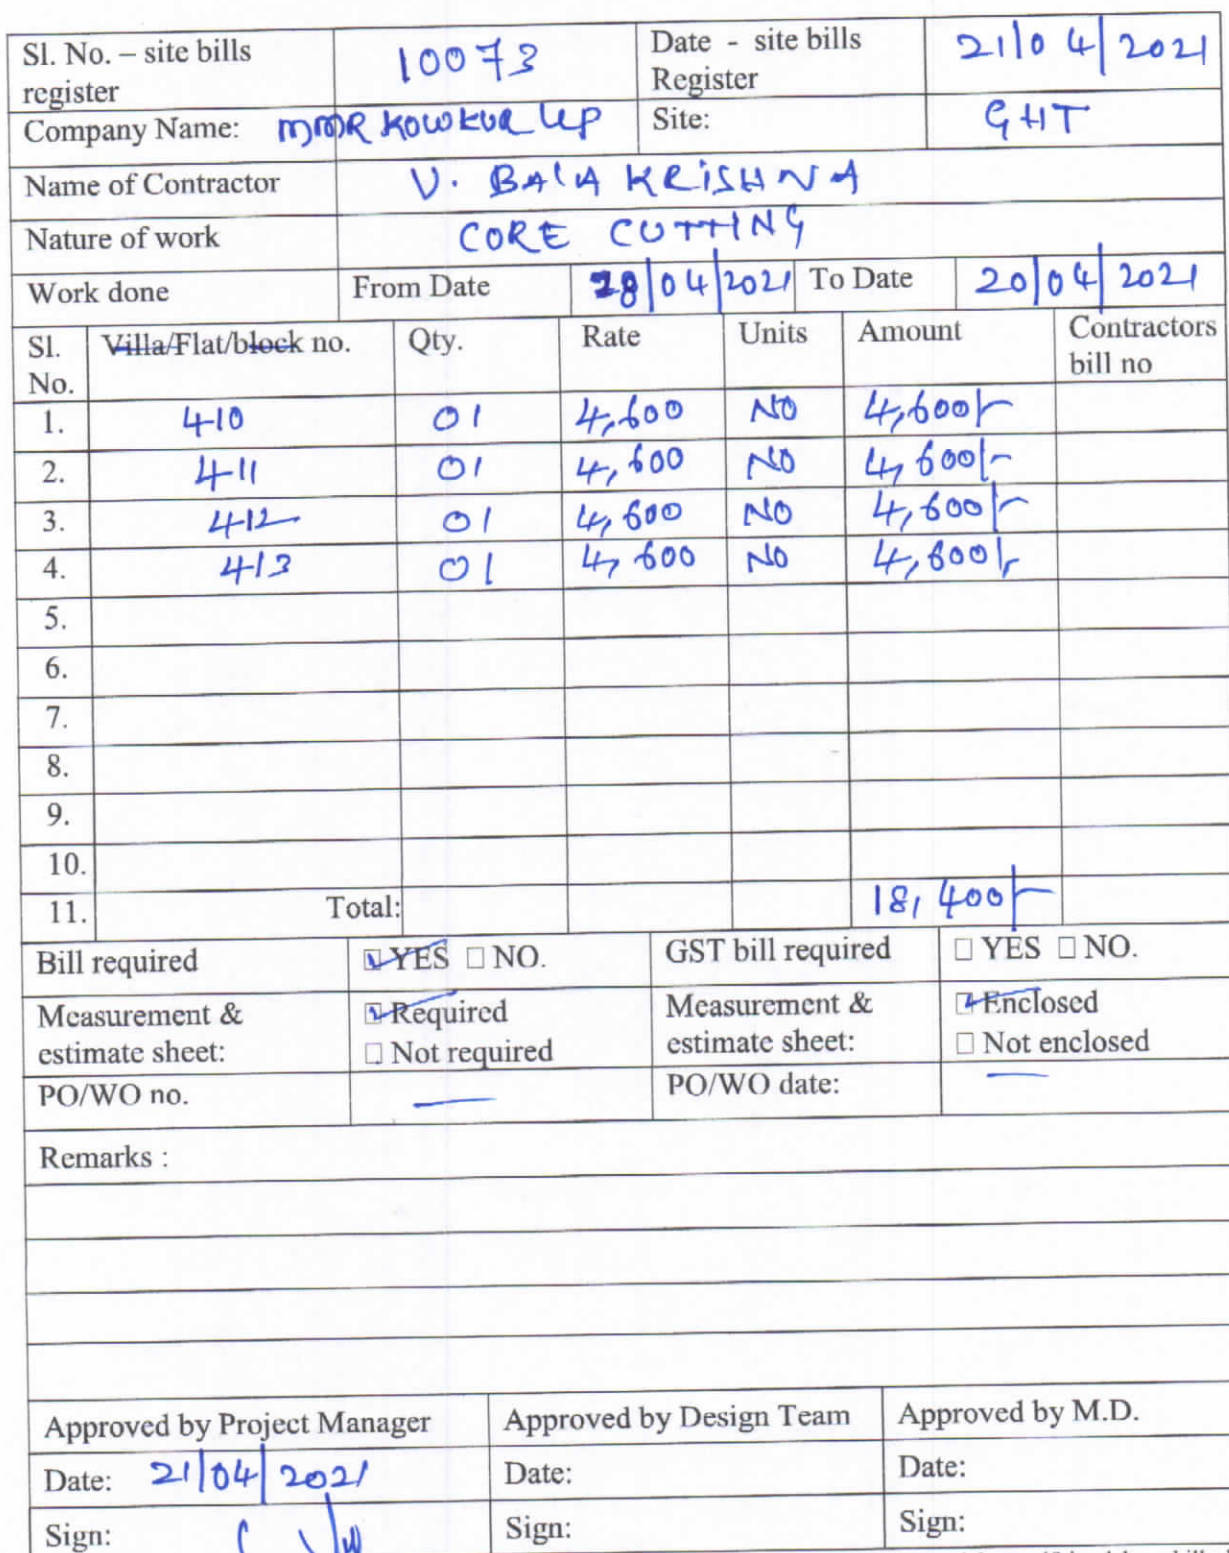 Sl. No. – site bills register 10073 Date - site bills Register 21/04/2021
Company Name: MMR KOWKUR LLP Site: GHT
Name of Contractor V. BALA KRISHNA
Nature of work CORE CUTTING
Work done From Date 28/04/2021 To Date 20/04/2021
Sl. No. Villa/Flat/block no. Qty. Rate Units Amount Contractors bill no
1. 410 01 4,600 NO 4,600/-
2. 411 01 4,600 NO 4,600/-
3. 412 01 4,600 NO 4,600/-
4. 413 01 4,600 NO 4,600/-
5.
6.
7.
8.
9.
10.
11. Total: 18,400/-
Bill required YES NO. GST bill required YES NO.
Measurement & estimate sheet: Required Not required Measurement & estimate sheet: Enclosed Not enclosed
PO/WO no. — PO/WO date: —
Remarks :
Approved by Project Manager Approved by Design Team Approved by M.D.
Date: 21/04/2021 Date: Date:
Sign: Sign: Sign: